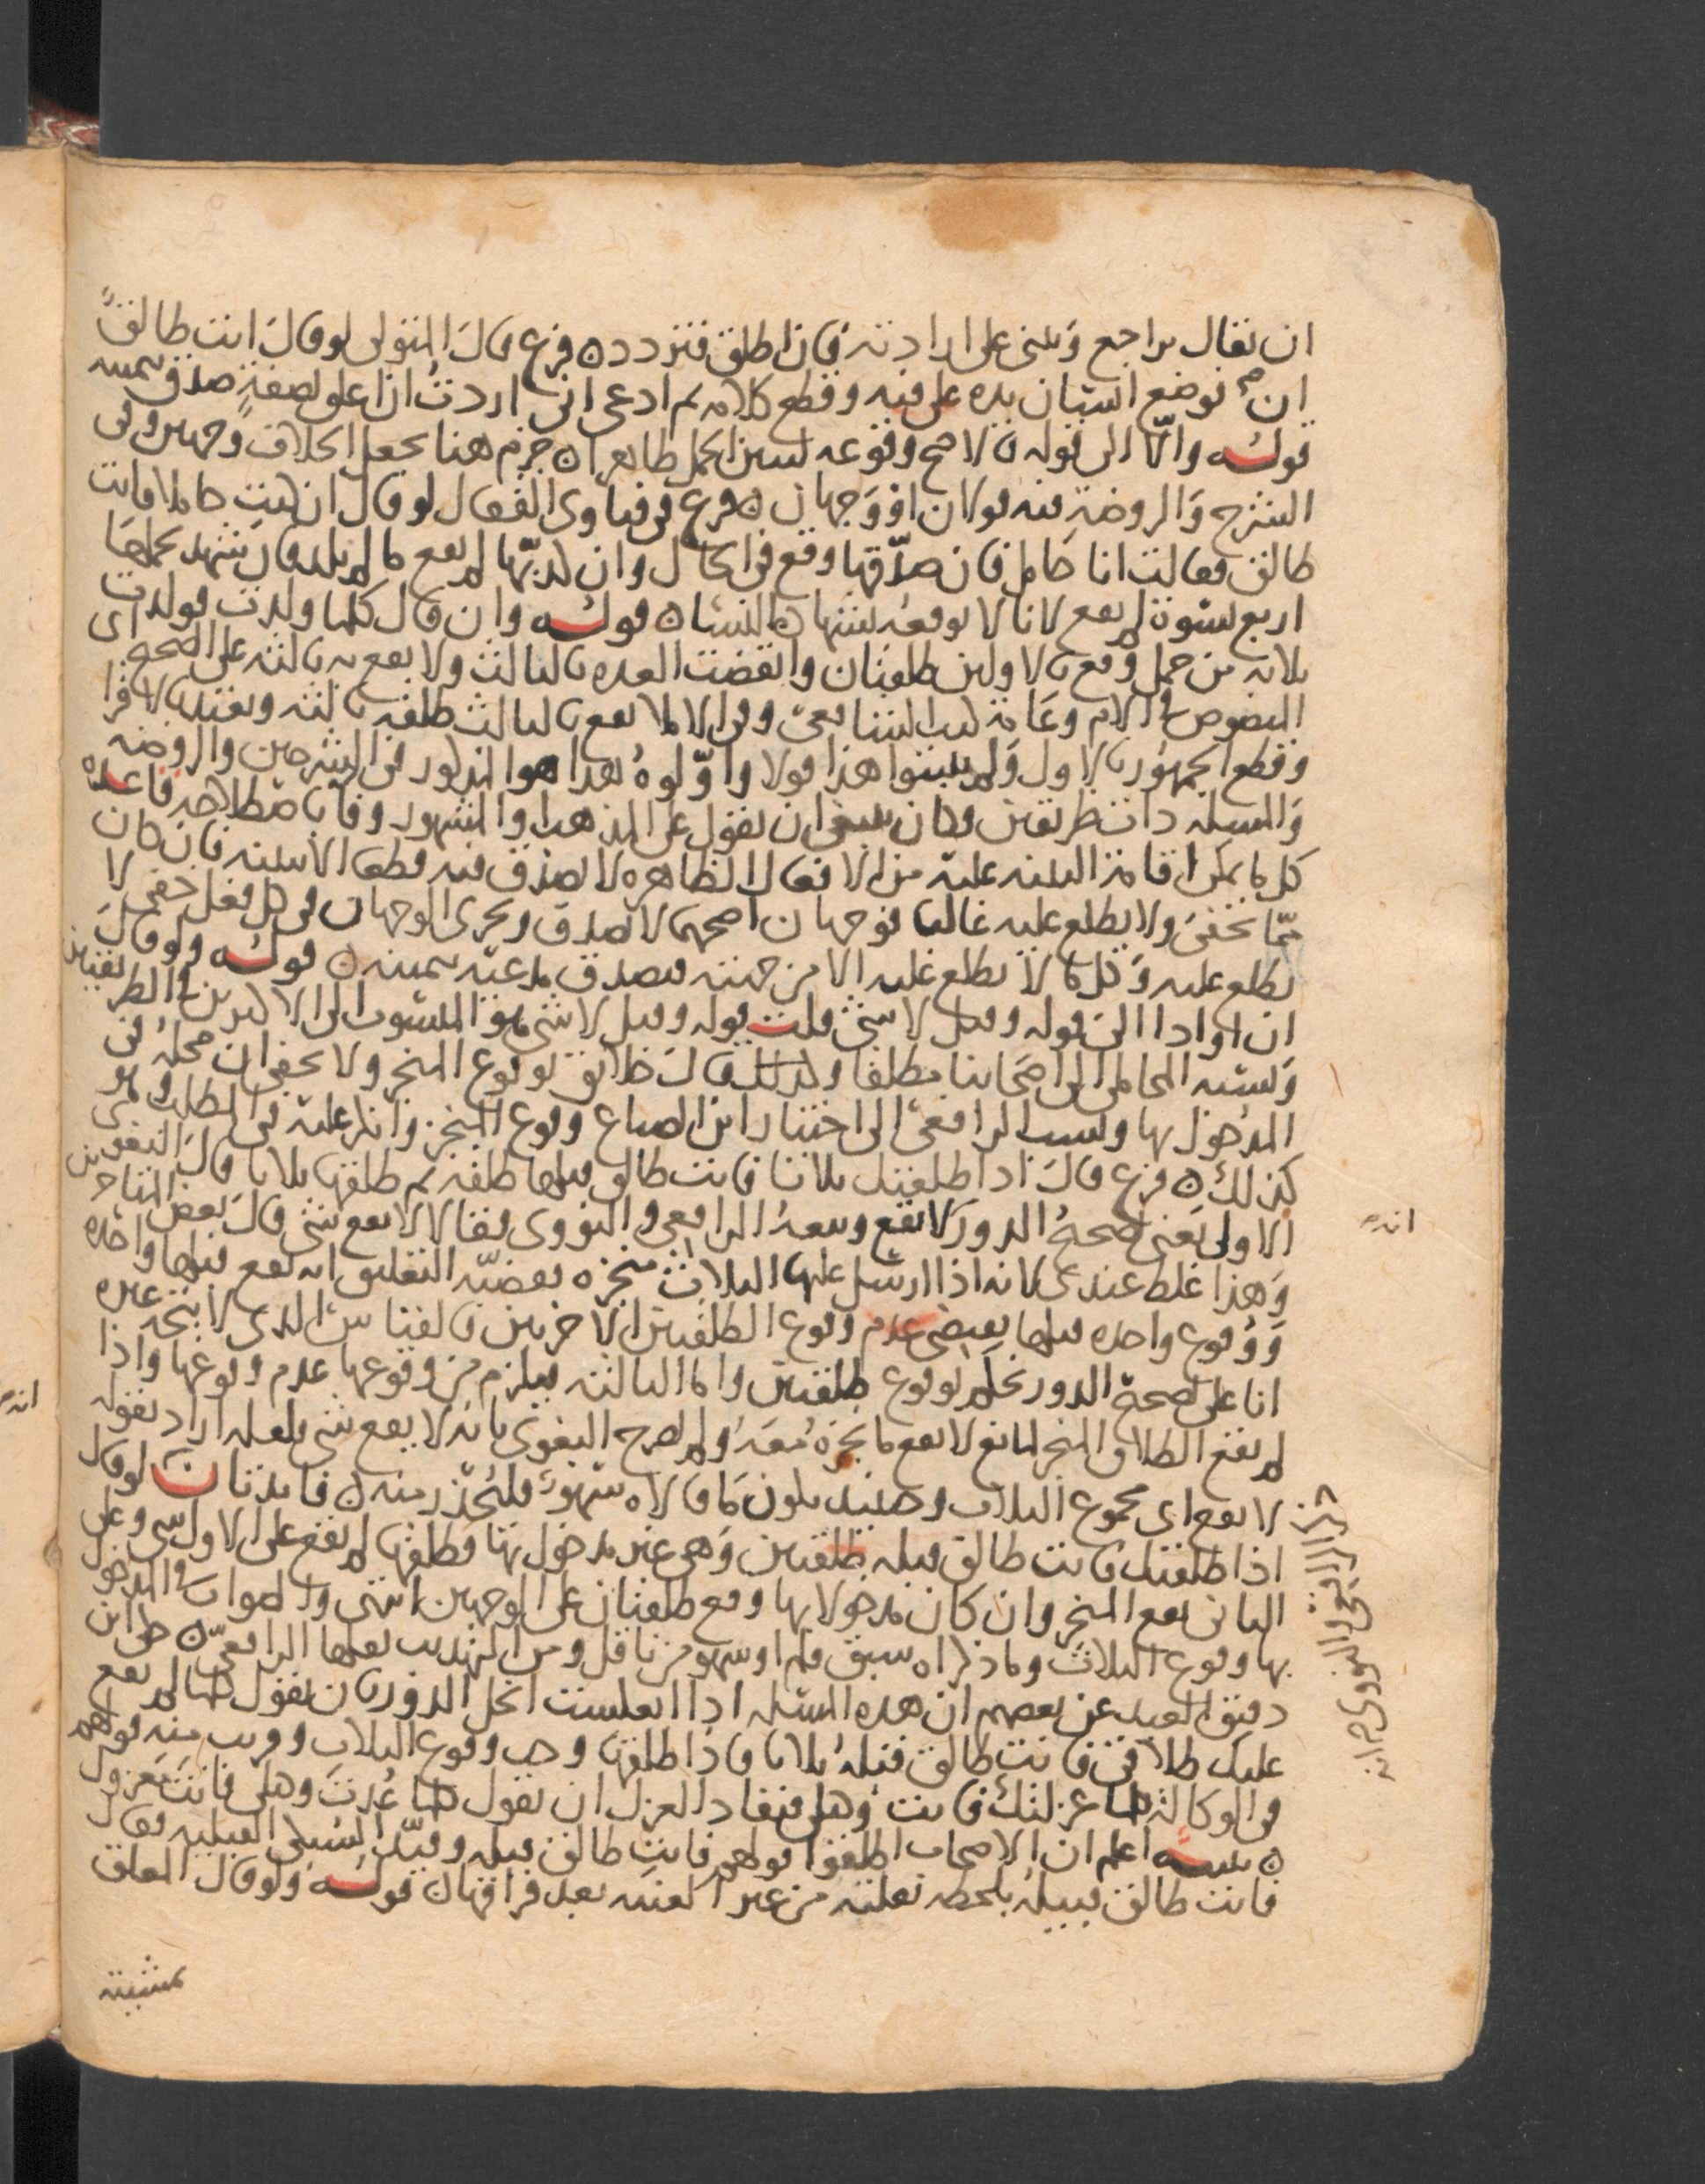 ان يقال يراجع ويبنى على ارادته فان اطلق فتردده فرع قال المتولى لو قال انت طالق
ان فوضع انسان يده على فيه وقطع كلامه ثم ادعى انى اردت ان اعلق بصفة صدق بيمينه
قوله والا الى قوله فالاصح وقوعه لتبين الحمل ظاهرا جزم هنا بجعل الخلاف وجهين وفى
الشرح والروضة فيه قولان او وجهان فرع فى فتاوى القفال لو قال ان كنت حاملا فانت
طالق فقالت انا حامل فان صدقها وقع فى الحال وان كذبها لم يقع ما لم تلد فان شهد بحملها
اربع نسوة لم يقع لانا لا نوقعه بشهادة النساء قوله وان قال كلما ولدت فولدت
ثلاثة من حمل وقع بالاولين طلقتان وانقضت العدة بالثالث ولا يقع به ثالثة على الصحيح اى
المنصوص فى الام وعامة كتب الشافعى وفى الاملا يقع بالثالث طلقة ثالثة وتعتد بالاقرا
وقطع الجمهور بالاول ولم يثبتوا هذا قولا واولوه هذا هو المذكور فى الشرحين والروضة
والمسئلة ذات طريقين وكان ينبغى ان يقول على المذهب او المشهور وفا باصطلاحه قاعدة
كل ما يمكن اقامة البينة عليه من الافعال الظاهرة لا تصدق فيه قطعا الا ببينة فان كان
مما يخفى ولا يطلع عليه غالبا فوجهان اصحهما لا تصدق ويجرى الوجهان فى كل فعل خفى لا
يطلع عليه وكل ما لا يطلع عليه الا من جهته فيصدق مدعيه بيمينه قوله ولو قال
ان او اذا الى قوله وقيل لا شى قلت قوله وقيل لا شى هو المنسوب الى الاكثرين فى الطريقين
ونسبه المحاملى الى اصحابنا مطلقا وكذلك قال خلائق بوقوع المنجز ولا يخفى ان محله فى
المدخول بها ونسب الرافعى الى اختيار ابن الصباغ وقوع المنجز وانكر عليه فى المطلب وهو
كذلك فرع قال اذا طلقتك ثلاثا فانت طالق قبلها طلقة ثم طلقها ثلاثا قال البغوى فى
الاولى يعنى صحة الدور لا تقع وتبعه الرافعى والنووى فقالا لا يقع شى قال بعض المتاخرين
وهذا غلط عندى لانه اذا ارسل عليها الثلاث منجزه بقضية التعليق انه يقع قبلها واحده
ووقوع واحده قبلها يقتضى عدم وقوع الطلقتين الاخريين فالقياس الذى لا يتجه غيره
انا على صحة الدور نحكم بوقوع طلقتين واما الثالثه فيلزم من وقوعها عدم وقوعها واذا
لم يقع الطلاق المنجز لمانع لا يقع ما نجزه معه ولم يصرح البغوى بانه لا يقع شى فلعله اراد بقوله
لا يقع اى مجموع الثلاث وحينئذ يكون ما قالاه سهوا فليحذر منه فائدتان لو قال
اذا طلقتك فانت طالق قبله طلقتين وهى غير مدخول بها فطلقها لم يقع على الاول شى وعلى
الثانى يقع المنجز وان كان مدخولا بها وقع طلقتان على الوجهين انتهى والصواب فى المدخول
بها وقوع الثلاث وما ذكراه سبق قلم او سهو من ناقل ومن التهذيب نقلها الرافعى حكى ابن
دقيق العيد عن بعضهم ان هذه المسئله اذا انعكست انحل الدور بان يقول كلما لم يقع
عليك طلاقى فانت طالق قبله ثلاثا فاذا طلقها وجب وقوع الثلاث وقريب منه قولهم
فى الوكالة كلما عزلتك فانت وكيلى فنفاذ العزل ان يقول كلما عدت وكيلى فانت معزول
تنبيه اعلم ان الاصحاب اطلقوا قولهم فانت طالق قبله وقيد السبكى القبليه فقال
فانت طالق قبيله بلحظة تعلقه من غير بعد فراقها قوله ولو قال العلق
بمشيئته
انه
انه
الرافعى والنووى